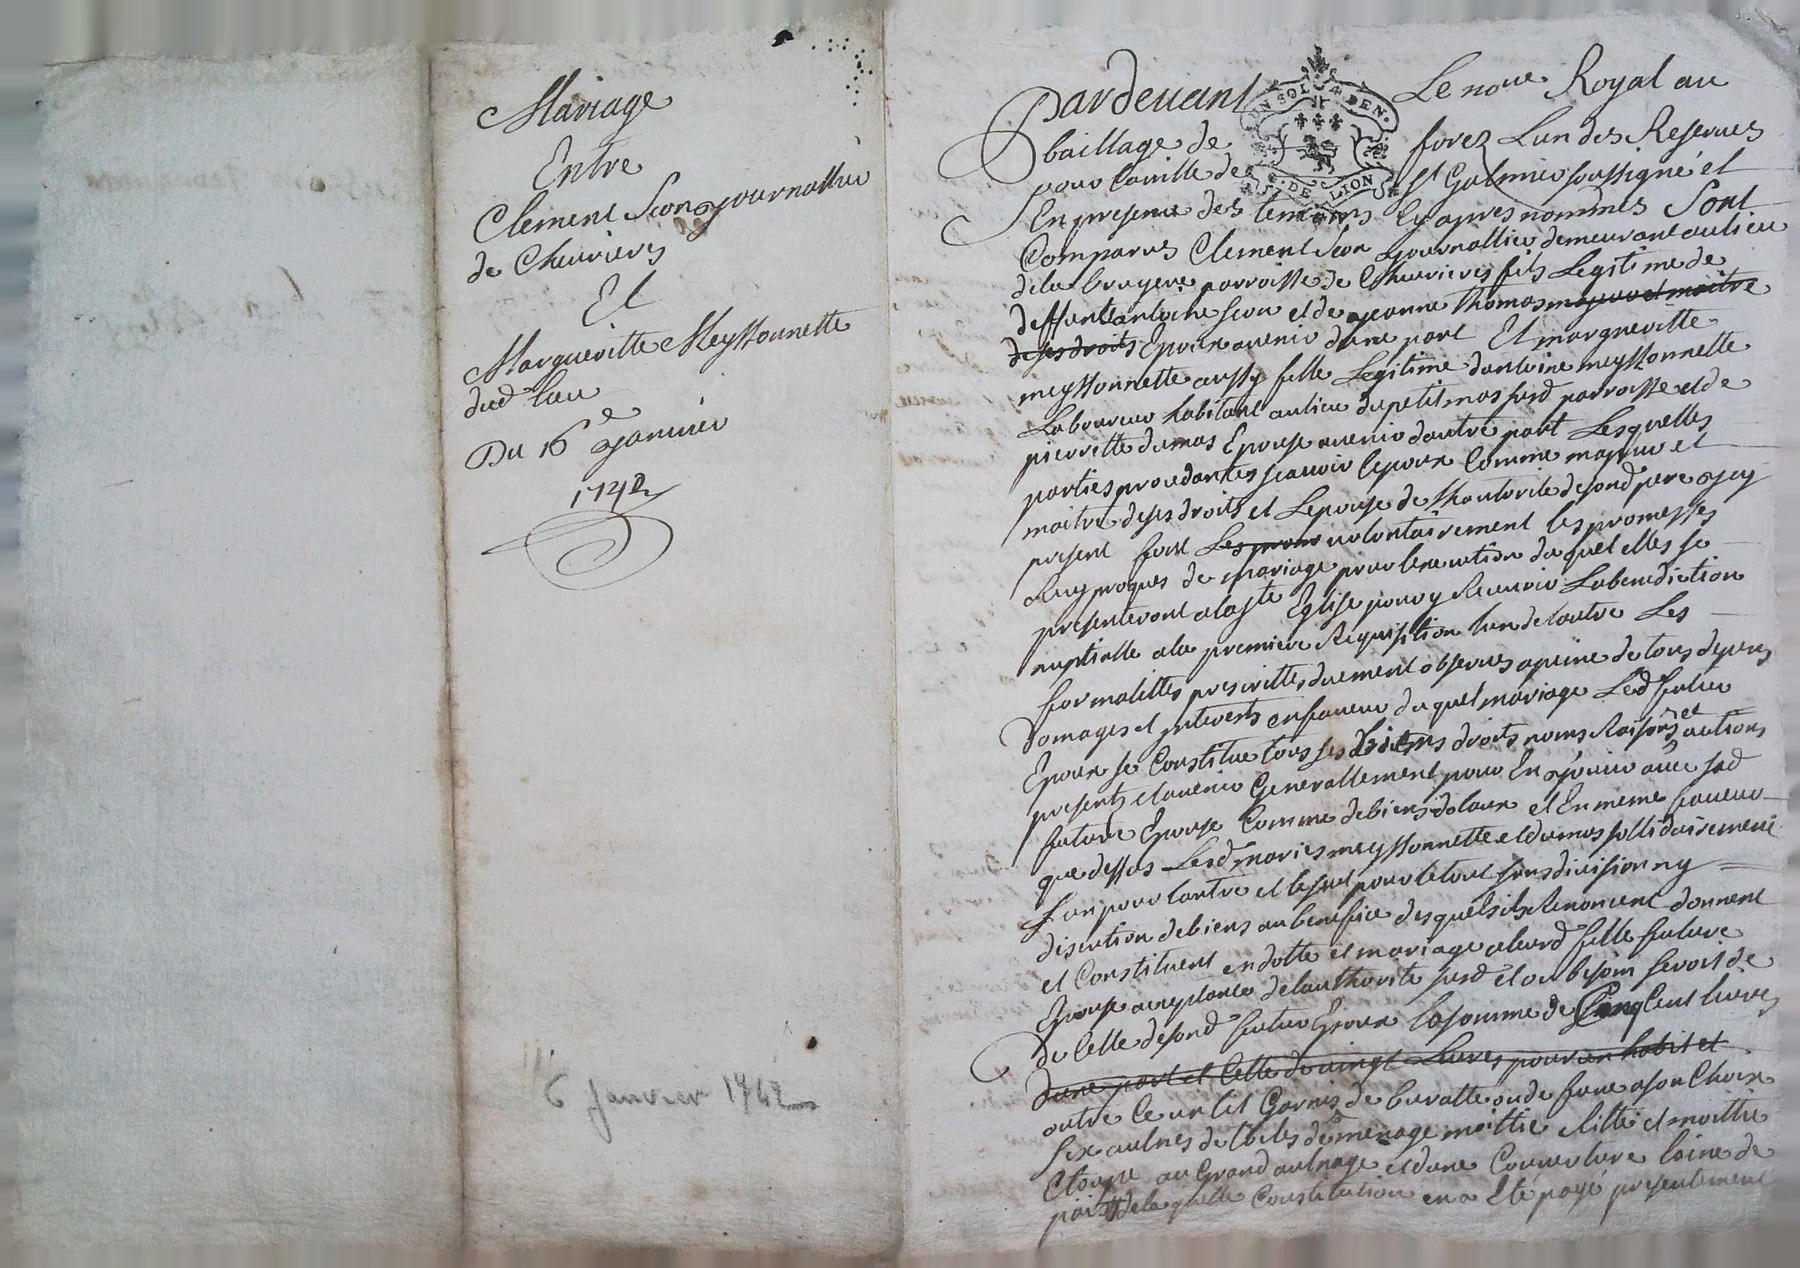 Mariage
Entre
Clement Seon journallier
de Chevrieres
Et
Margueritte Meyssonnette
dud. lieu
Du 16e janvier
1742
6 Janvier 1742
Pardevant Le no.re Royal au
UN SOL 4 DEN.
G. DE LION
baillage de forez Lun des Reserves
pour la ville de St Galmier soussigné et
En presence des temoins Cy apres nommés Sont
Comparus Clement Seon journallier demeurant au lieu
de la bruyere parroisse de Chevrieres fils Legitime de
deffunt antoine seon et de jeanne thomas majeur et maitre
de ses droits Epoux avenir dune part Et margueritte
meyssonnette aussy fille Legitime dantoine meyssonnette
Laboureur habitant au lieu du petit mas susd. parroisse et de
pierrette dumas Epouse avenir dautre part Lesquelles
parties procedantes scavoir lepoux Comme majeur et
maitre de ses droits et Lepouse de Lhautorité de sond. pere jcy
present font Les prom volontairement les promesses
reciproques de mariage pour lexecution du quel elles se
presenteront a la ste Eglise pour y Recevoir La benediction
nuptialle a la premiere Requisition lun de lautre Les
formalittes prescrittes duement observees a peine de tous depens
domages et jnterests en faveur du quel mariage Led. futur
Epoux se Constitue tous ses biens droits noms Raisons et actions
presents et avenir Generallement pour En jouir avec sad.
future Epouse Comme de biens dotaux et En meme faveur
que dessus Lesd. maries meyssonnette et dumas sollidairement
Lun pour lautre et le seul pour le tout sans division ny
discution de biens au benefice des quels ils Renoncent donnent
et Constituent en dotte et mariage a leurd. fille future
Epouse acceptante de lauthorité susd. et au besoin seroit de
de Celle de sond. futur Epoux la somme de Cinq Cent livres
dune part et Celle de vingt Livres pour un habit et
outre Ce un lit Garnis de buratte ou de sarge a son Choix
six aulnes de toiles de menage moittié Ritte et moittié
Etoupe au Grand aulnage et dune Couverture laine de
païs de la quelle Constitution en a Eté payé presentement